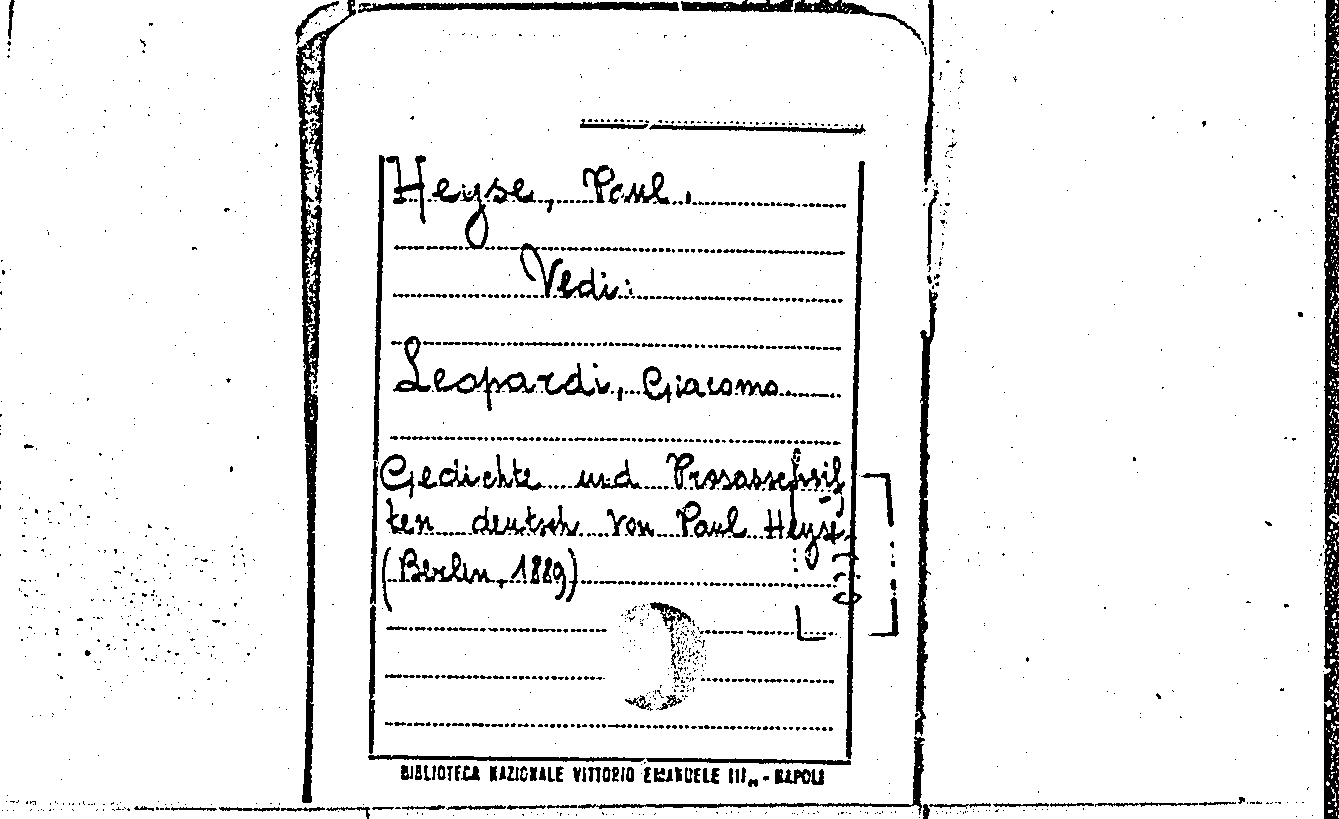 Heyse, Paul.
Vedi:
Leopardi, Giacomo.
Gedichte und Prosasschrif
ten deutsch von Paul Heyse
(Berlin, 1889)
BIBLIOTECA NAZIONALE VITTORIO EMANUELE III„ - NAPOLI